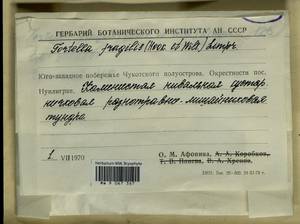 ГЕРБАРИЙ БОТАНИЧЕСКОГО ИНСТИТУТА АН СССР
Tortella fragilis (Hook. et Wils.) Limpr.
Юго-западное побережье Чукотского полуострова. Окрестности пос.
Нунлигран. Каменистая нивальная кустар
ничковая разнотравно-лишайниковая
тундра
1. VII 1970
О. М. Афонина, А. А. Коробков,
Т. В. Плиева, В. А. Хренов.
Herbarium MW, Bryophyta
MW 9 067 387